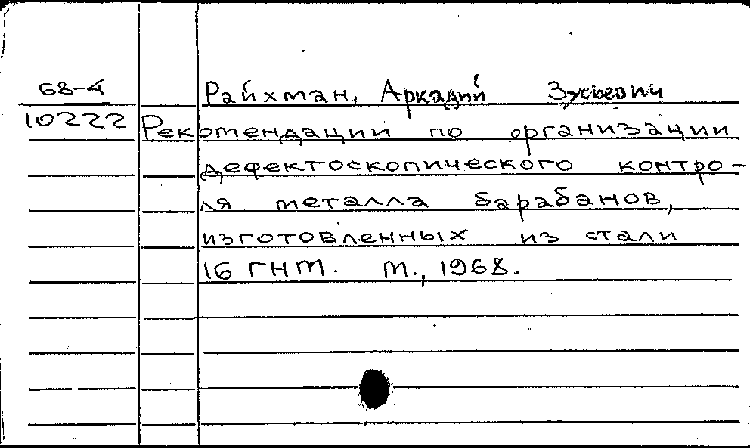 68-4 Райхман, Аркадий Зусьевич
10222 Рекомендации по организации
дефектоскопического контро-
ля металла барабанов,
изготовленных из стали
16 ГНМ. М., 1968.